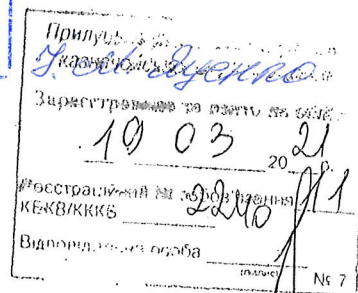 Прилуц
казначейськ
Зареєстровано та взято на облік
19 03 2021 р.
Реєстраційний № зобов'язання 11
КЕКВ/КККБ 2240
Відповідальна особа
(підпис)
№ 7